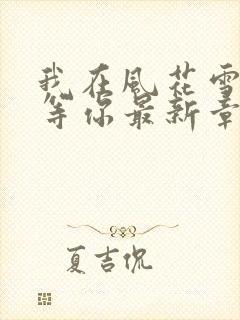 我在風花雪
等你最新章
夏吉侃